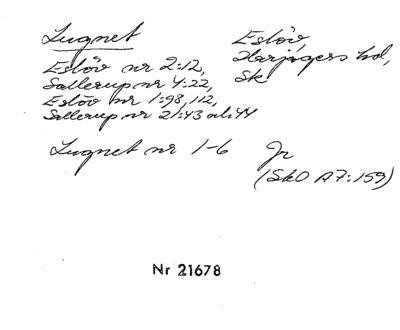 Lugnet
Eslöv,
Harjagers hd,
Sk
Eslöv nr 2:12,
Sallerup nr 4:22,
Eslöv nr 1:98, 112,
Sallerup nr 21:43 o 44
Lugnet nr 1-6 Jr
(SkO A7:159)
Nr 21678